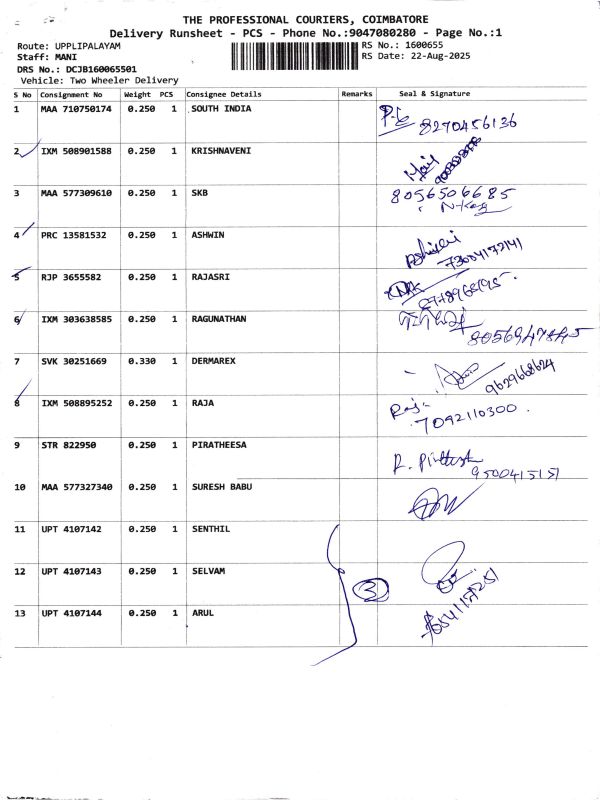 THE PROFESSIONAL COURIERS, COIMBATORE
Delivery Runsheet - PCS - Phone No.:9047080280 - Page No.:1
Route: UPPLIPALAYAM RS No.: 1600655
Staff: MANI RS Date: 22-Aug-2025
DRS No.: DCJB160065501
Vehicle: Two Wheeler Delivery
S No Consignment No Weight PCS Consignee Details Remarks Seal & Signature
1 MAA 710750174 0.250 1 SOUTH INDIA
8270456136
2 IXM 508901588 0.250 1 KRISHNAVENI
3 MAA 577309610 0.250 1 SKB 8056506685
4 PRC 13581532 0.250 1 ASHWIN
5 RJP 3655582 0.250 1 RAJASRI
6 IXM 303638585 0.250 1 RAGUNATHAN
7 SVK 30251669 0.330 1 DERMAREX
9629668624
8 IXM 508895252 0.250 1 RAJA Raja
7092110300
9 STR 822950 0.250 1 PIRATHEESA
9500415151
10 MAA 577327340 0.250 1 SURESH BABU
11 UPT 4107142 0.250 1 SENTHIL
12 UPT 4107143 0.250 1 SELVAM
3
13 UPT 4107144 0.250 1 ARUL